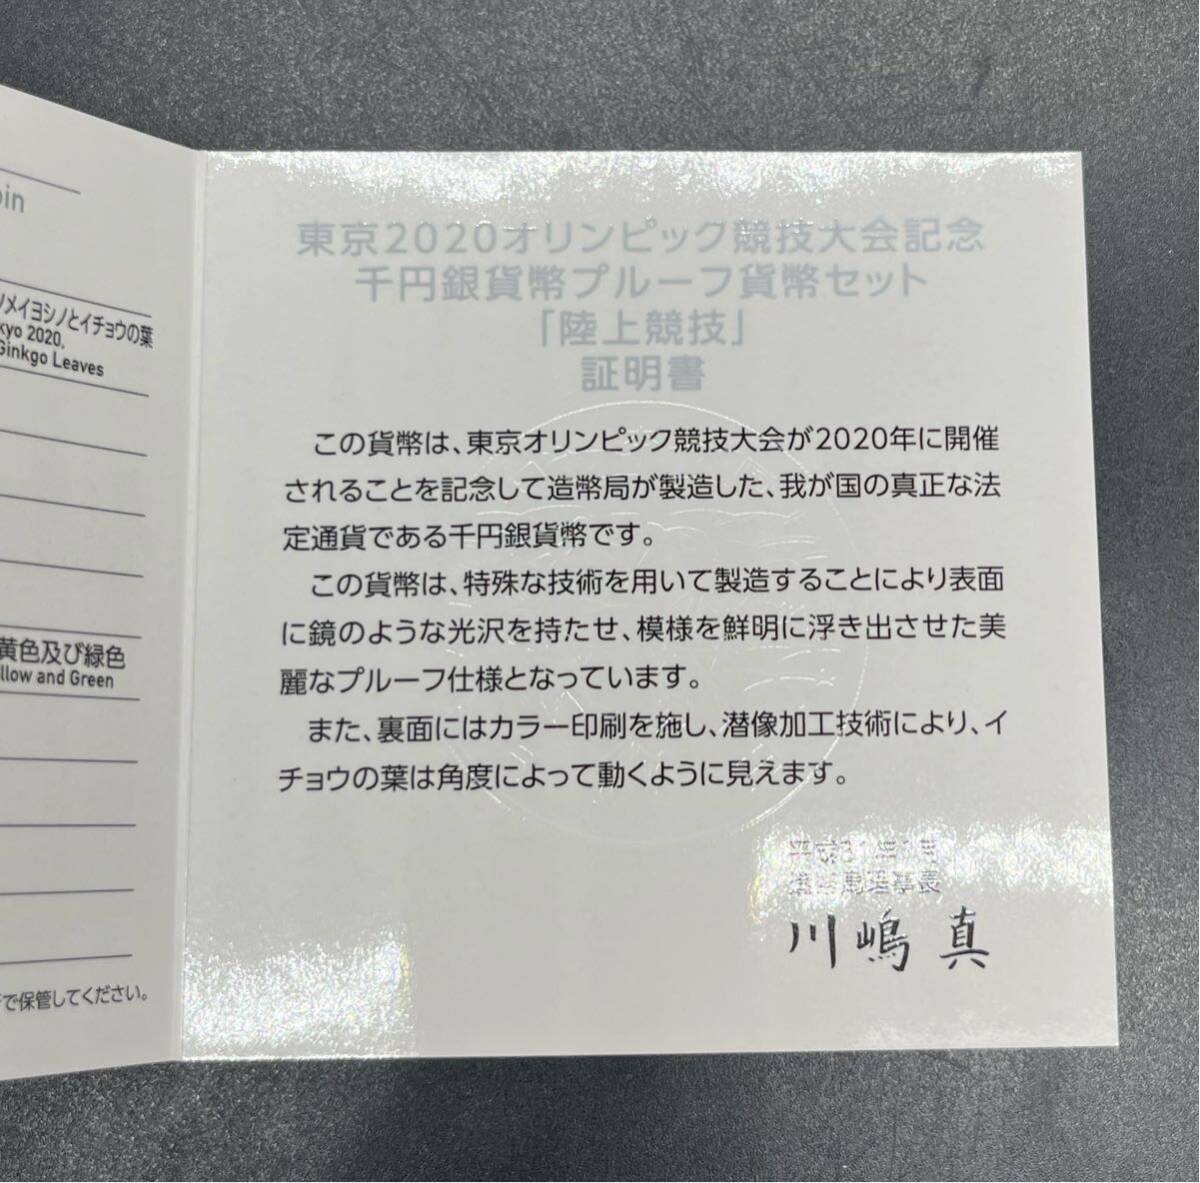 oin
メイヨシノとイチョウの葉
kyo 2020.
Ginkgo Leaves
黄色及び緑色
llow and Green
で保管してください。
東京2020オリンピック競技大会記念
千円銀貨幣プルーフ貨幣セット
「陸上競技」
証明書
この貨幣は、東京オリンピック競技大会が2020年に開催
されることを記念して造幣局が製造した、我が国の真正な法
定通貨である千円銀貨幣です。
この貨幣は、特殊な技術を用いて製造することにより表面
に鏡のような光沢を持たせ、模様を鮮明に浮き出させた美
麗なプルーフ仕様となっています。
また、裏面にはカラー印刷を施し、潜像加工技術により、イ
チョウの葉は角度によって動くように見えます。
川嶋 真